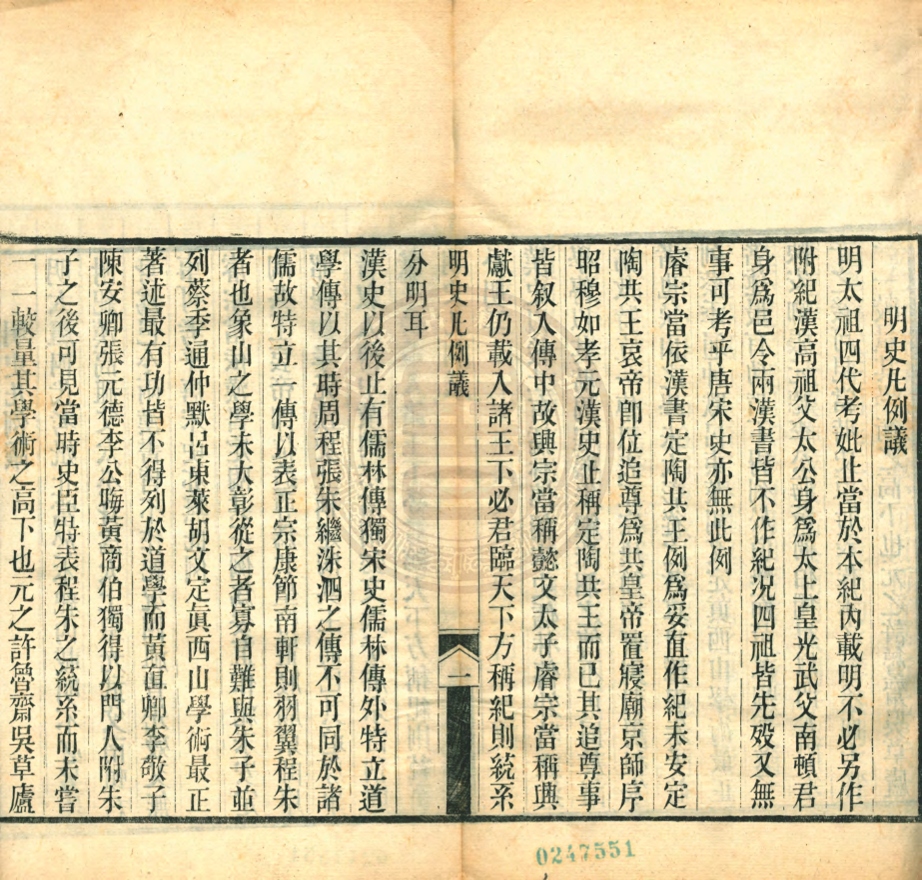 明史凡例議
明太祖四代考妣止當於本紀內載明不必另作
附紀漢高祖父太公身爲太上皇光武父南頓君
身爲邑令兩漢書皆不作紀况四祖皆先殁又無
事可考乎唐宋史亦無此例
睿宗當依漢書定陶共王例爲妥直作紀未安定
陶共王哀帝卽位追尊爲共皇帝置寢廟京師序
昭穆如孝元漢史止稱定陶共王而已其追尊事
皆叙入傳中故興宗當稱懿文太子睿宗當稱興
獻王仍載入諸王下必君臨天下方稱紀則統系
明史凡例議
一
分明耳
漢史以後止有儒林傳獨宋史儒林傳外特立道
學傳以其時周程張朱繼洙泗之傳不可同於諸
儒故特立一傳以表正宗康節南軒則羽翼程朱
者也象山之學未大彰從之者寡自難與朱子並
列蔡季通仲默呂東萊胡文定眞西山學術最正
著述最有功皆不得列於道學而黃直卿李敬子
陳安卿張元德李公晦黃商伯獨得以門人附朱
子之後可見當時史臣特表程朱之統系而未嘗
一一較量其學術之高下也元之許魯齋吳草廬
0247551